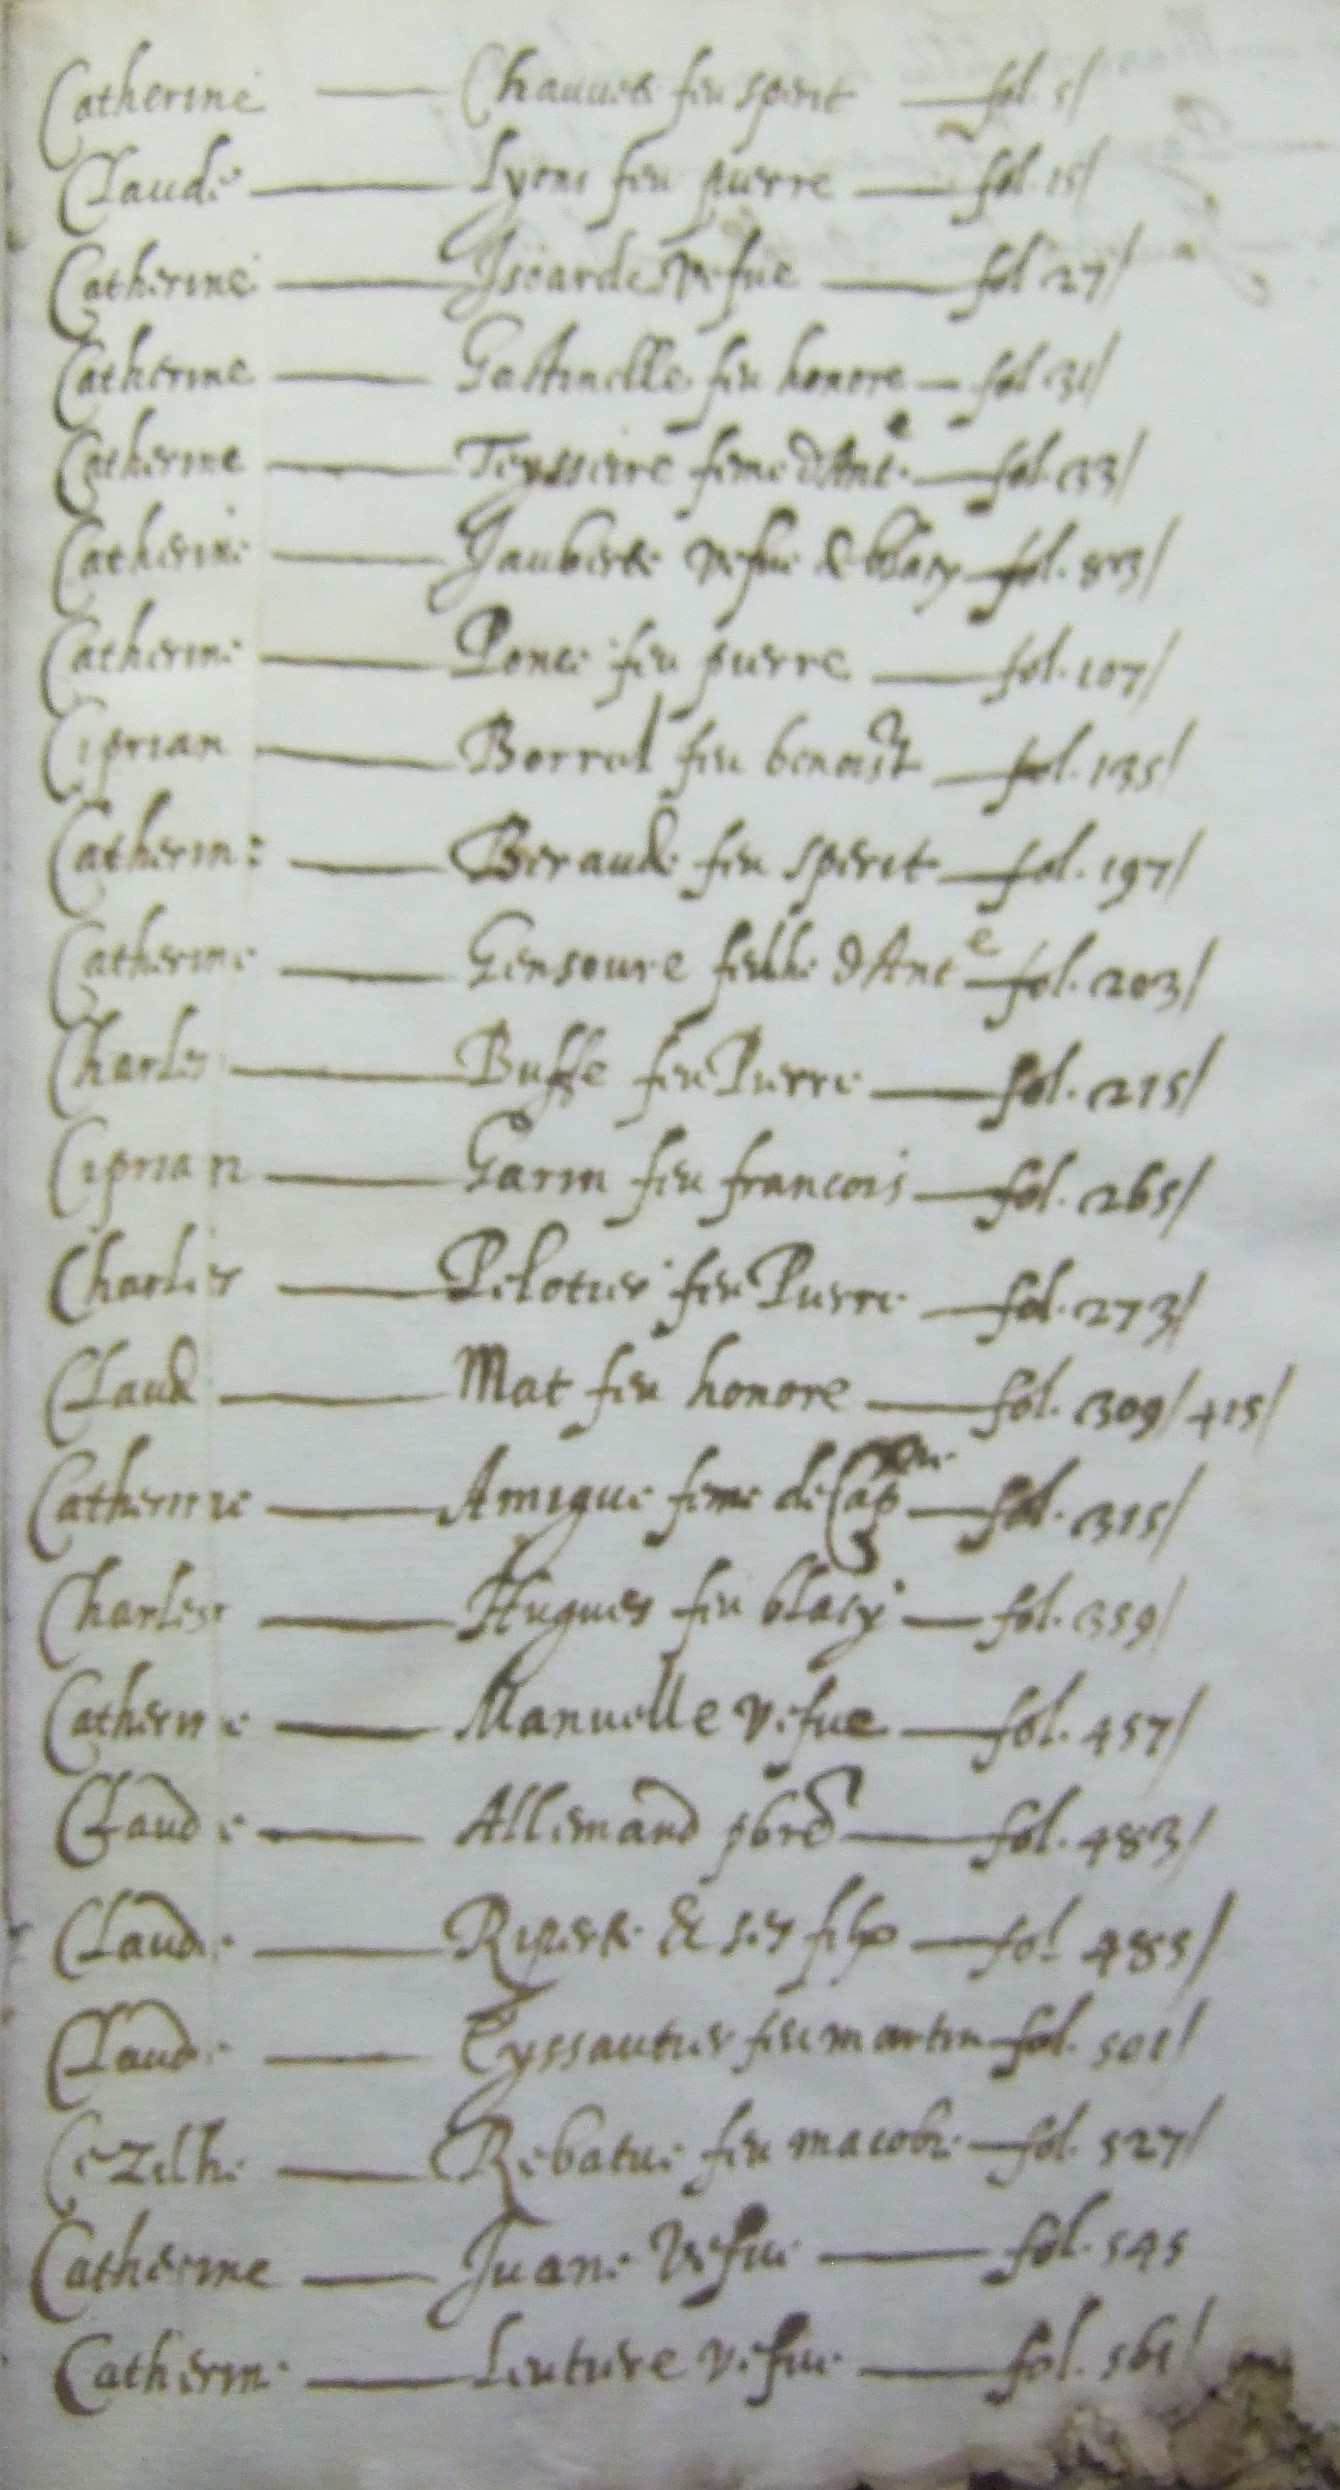 Catherine — Chauvete feu sperit — fol. 5/
Claude — Lyons feu pierre — fol. 15/
Catherine — Isoarde vefue — fol 27/
Catherine — Gastinelle feu honore — fol 31/
Catherine — Teyssiere feme dAnt.e — fol. 33/
Catherine — Jauberte vefue de blasy — fol. 83/
Catherine — Ponce feu pierre — fol. 107/
Ciprian — Borrel feu benoist — fol. 135/
Catherine — Beraude feu sperit — fol. 197/
Catherine — Gensoure feulhe dAnt e — fol. 203/
Charles — Busse feu Pierre — fol. 215/
Ciprian — Garin feu francois — fol. 265/
Charles — Pelotier feu Pierre — fol. 273/
Claude — Mat feu honore — fol. 309/ 415/
Catherine — Amigue feme de Cap — fol. 315/
Charles — Hugues feu blasy — fol. 359/
Catherine — Manuelle vefue — fol. 457/
Claude — Allemand pbre — fol. 483/
Claude — Riperte & ses filz — fol 485/
Claude — Eyssautier feu martin fol. 501/
Cezelhe — Rebatue feu macobi — fol. 527/
Catherine — Juane vefue — fol. 545
Catherine — Leutiere vefue — fol. 561/